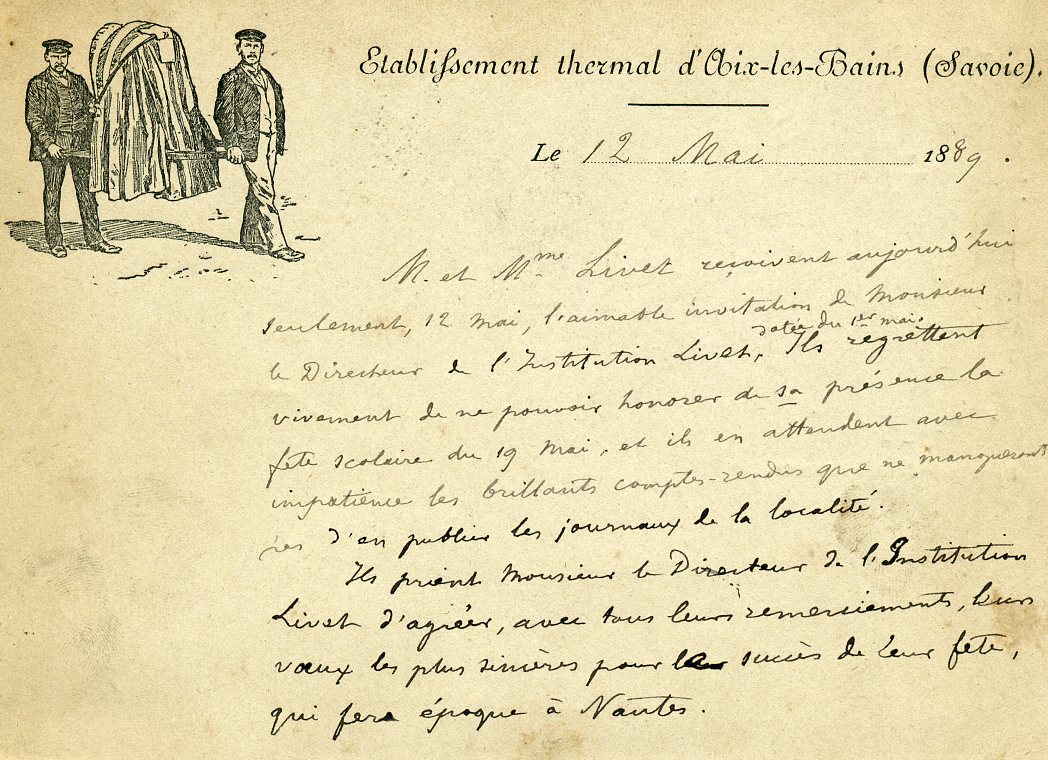 Etablissement thermal d'Aix-les-Bains (Savoie).
Le 12 Mai 1889.
M. et Mme Livet reçoivent aujourd'hui
seulement, 12 mai, l'aimable invitation de Monsieur
le Directeur de l'Institution Livet, datée du 1er mai. Ils regrettent
vivement de ne pouvoir honorer de sa présence la
fête scolaire du 19 mai, et ils en attendent avec
impatience les brillants comptes-rendus que ne manqueront
pas d'en publier les journaux de la localité.
Ils prient Monsieur le Directeur de l'Institution
Livet d'agréer, avec tous leurs remerciements, leurs
vœux les plus sincères pour le succès de leur fête,
qui fera époque à Nantes.